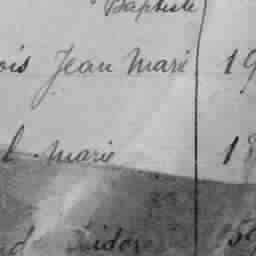 Baptiste
ois Jean Marie 19
l. Marie 18
Isidore 59